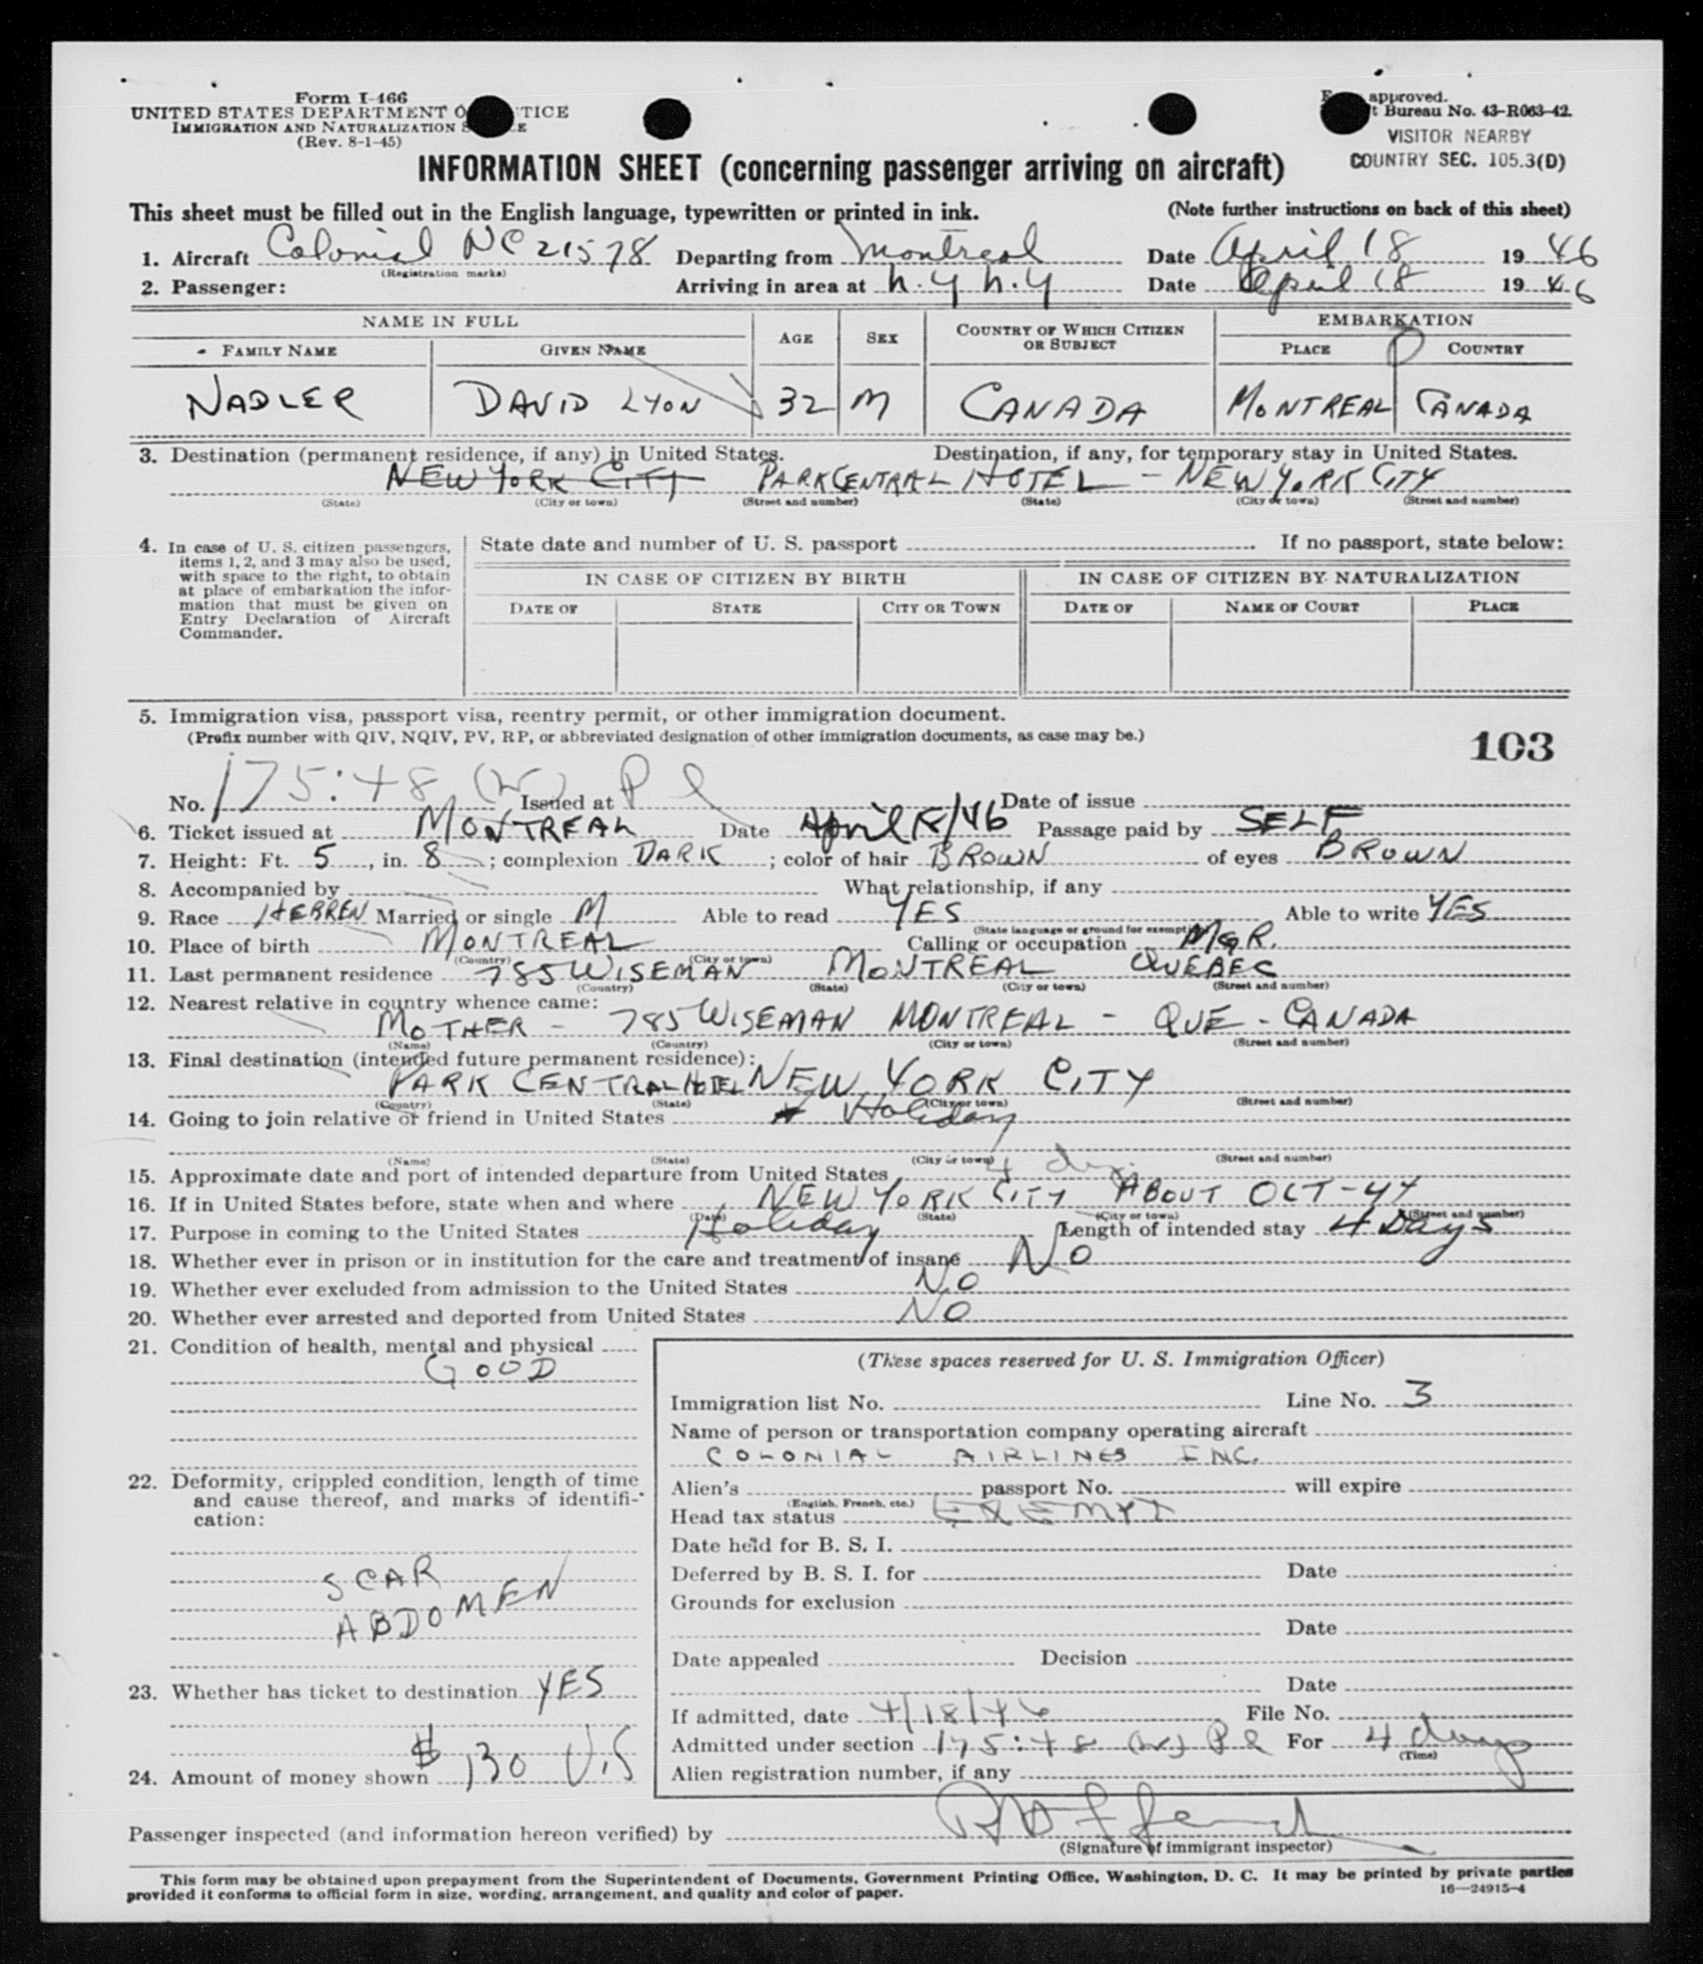 Form I-466
UNITED STATES DEPARTMENT O TICE
IMMIGRATION AND NATURALIZATION S E
(Rev. 8-1-45)
approved.
t Bureau No. 43-R063-42.
VISITOR NEARBY
COUNTRY SEC. 105.3(D)
INFORMATION SHEET (concerning passenger arriving on aircraft)
This sheet must be filled out in the English language, typewritten or printed in ink. (Note further instructions on back of this sheet)
1. Aircraft Colonial NC 21578 Departing from Montreal Date April 18 19 46
(Registration marks)
2. Passenger: Arriving in area at N.Y N.Y Date April 18 19 46
NAME IN FULL EMBARKATION
FAMILY NAME GIVEN NAME AGE SEX COUNTRY OF WHICH CITIZEN OR SUBJECT PLACE COUNTRY
NADLER DAVID LYON 32 M CANADA MONTREAL CANADA
3. Destination (permanent residence, if any) in United States. Destination, if any, for temporary stay in United States.
NEW YORK CITY PARK CENTRAL HOTEL - NEW YORK CITY
(State) (City or town) (Street and number) (State) (City or town) (Street and number)
4. In case of U. S. citizen passengers, items 1, 2, and 3 may also be used, with space to the right, to obtain at place of embarkation the information that must be given on Entry Declaration of Aircraft Commander.
State date and number of U. S. passport If no passport, state below:
IN CASE OF CITIZEN BY BIRTH IN CASE OF CITIZEN BY NATURALIZATION
DATE OF STATE CITY OR TOWN DATE OF NAME OF COURT PLACE
5. Immigration visa, passport visa, reentry permit, or other immigration document.
(Prefix number with QIV, NQIV, PV, RP, or abbreviated designation of other immigration documents, as case may be.)
103
No. 175:48 (W) Pl Issued at Date of issue
6. Ticket issued at MONTREAL Date April /46 Passage paid by SELF
7. Height: Ft. 5, in. 8; complexion DARK; color of hair BROWN of eyes BROWN
8. Accompanied by What relationship, if any
9. Race HEBREW Married or single M Able to read YES Able to write YES
(State language or ground for exemption)
10. Place of birth MONTREAL Calling or occupation MGR.
(Country) (City or town)
11. Last permanent residence 785 WISEMAN MONTREAL QUEBEC
(Country) (State) (City or town) (Street and number)
12. Nearest relative in country whence came:
MOTHER - 785 WISEMAN MONTREAL - QUE - CANADA
(Name) (Country) (City or town) (Street and number)
13. Final destination (intended future permanent residence):
PARK CENTRAL HOTEL NEW YORK CITY
(Country) (State) (City or town) (Street and number)
14. Going to join relative or friend in United States Holiday
(Name) (State) (City or town) (Street and number)
15. Approximate date and port of intended departure from United States 4 dys.
16. If in United States before, state when and where NEW YORK CITY ABOUT OCT-44
(Date) (State) (City or town) (Street and number)
17. Purpose in coming to the United States Holiday Length of intended stay 4 Days
18. Whether ever in prison or in institution for the care and treatment of insane No
19. Whether ever excluded from admission to the United States No
20. Whether ever arrested and deported from United States No
21. Condition of health, mental and physical
GOOD
22. Deformity, crippled condition, length of time and cause thereof, and marks of identification:
SCAR
ABDOMEN
23. Whether has ticket to destination YES
24. Amount of money shown $130 U.S
(These spaces reserved for U. S. Immigration Officer)
Immigration list No. Line No. 3
Name of person or transportation company operating aircraft
COLONIAL AIRLINES INC.
Alien's passport No. will expire
(English, French, etc.)
Head tax status EXEMPT
Date held for B. S. I.
Deferred by B. S. I. for Date
Grounds for exclusion
Date
Date appealed Decision
Date
If admitted, date 4/18/46 File No.
Admitted under section 175:48 (W) Pl For 4 days
(Time)
Alien registration number, if any
Passenger inspected (and information hereon verified) by
(Signature of immigrant inspector)
This form may be obtained upon prepayment from the Superintendent of Documents, Government Printing Office, Washington, D. C. It may be printed by private parties
provided it conforms to official form in size, wording, arrangement, and quality and color of paper. 16—24915-4